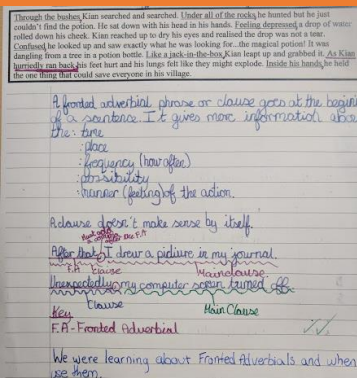 Through the bushes Kian searched and searched. Under all of the rocks he hunted but he just
couldn't find the potion. He sat down with his head in his hands. Feeling depressed, a drop of water
rolled down his cheek. Kian reached up to dry his eyes and realised the drop was not a tear.
Confused, he looked up and saw exactly what he was looking for...the magical potion! It was
dangling from a tree in a potion bottle. Like a jack-in-the-box, Kian leapt up and grabbed it. As Kian
hurriedly ran back his feet hurt and his lungs felt like they might explode. Inside his hands he held
the one thing that could save everyone in his village.
A fronted adverbial phrase or clause goes at the begin
of a scentence. It gives more information abou
the: time
: place
: frequency (how often)
: possibility
: manner (feeling) of the action.
A clause doesn't make sense by itself.
Must add
a after the F.A
After that, I drew a pidiure in my journal.
F.A clause Mainclause.
Unexpectedly, my computer screen turned off.
Clause Main Clause
Key
F.A-Fronted Adverbial
We were learning about Fronted Adverbials and when
use them.